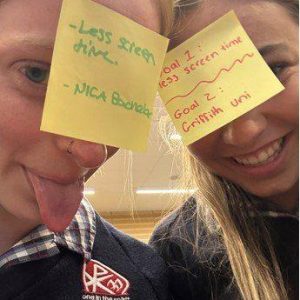 - Less screen
time.
- NICA Bachelor
Goal 1:
less screen time
Goal 2:
Griffith Uni